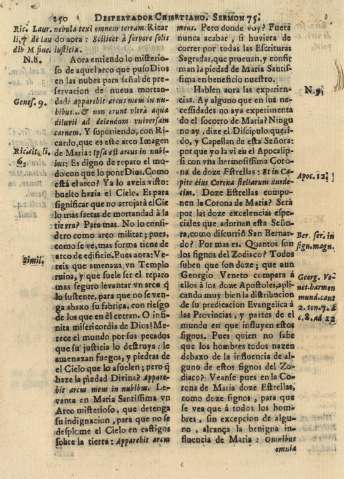 250 DESPERTADOR CHRISTIANO. SERMON 75.
Ric. Laur. nebula texi omnem terram. Ricar
li. 7 de lau do aora: Scilicet à fervore solis
N.8. Aora entiendo lo misterio-
so de aquel arco que puso Dios
en las nubes para señal de pre-
servacion de nueva mortan-
Genes. 9. dad: apparebit arcus meus in nu-
bibus... & non erunt vltrà aqua
diluvij ad delendum vniversam
carnem. Y suponiendo, con Ri-
cardo, que es este arco Imagen
de Maria: Ipsa est arcus in nubi-
bus: Es digno de reparo el mo-
do con que lo pone Dios. Como
està el arco? Ya lo aveis visto:
buelto hàzia el Cielo. Es para
significar que no arrojarà el Cie
lo mas saetas de mortandad à la
tierra? Para mas. No lo confi-
dero como arco militar; pues,
como se ve, mas forma tiene de
Simil. arco de edificio. Pues aora: Ve-
reis que amenaza vn Templo
ruina, y que suele ser el repaso
mas seguro levantar vn arco q̃
lo sustente, para que no se ven-
ga abaxo su fabrica, con riesgo
de los que en èl entran. O infi-
nita misericordia de Dios! Me-
rece el mundo por sus pecados
que su justicia lo destruya: le
amenazan fuegos, y piedras de
el Cielo que lo assuelen; pero q̃
haze la piedad Divina? Appare-
bit arcus meus in nubibus. Le-
vanta en Maria Santissima vn
Arco misterioso, que detenga
su indignacion, para que no se
desplome el Cielo en castigos
sobre la tierra: Apparebit arcus
meus. Pero donde voy? Fuera
nunca acabar, si huviera de
correr por todas las Escrituras
Sagradas, que prueuan, y confir
man la piedad de Maria Santissi-
ma en beneficio nuestro.
N.9. Hablen aora las experien-
cias. Ay alguno que en sus ne-
cessidades no aya experimenta
do el socorro de Maria? Ningu
no ay, dize el Discipulo queri-
do, y Capellan de esta Señora;
por que yo la vi en el Apocalip-
si con vna hermosissima Coro-
na de doze Estrellas: Et in Ca-
Apoc. 12. pite eius Corona stellarum duode-
cim. Doze Estrellas compo-
nen la Corona de Maria? Serà
por las doze excelencias espe-
ciales que adornan esta Seño-
Ber. ser. in ra, como discurriò San Bernar-
sign. magn. do? Por mas es. Quantos son
los signos del Zodiaco? Todos
saben que son doze; que aun
Georgio Veneto compara à
Georg. Ve ellos à los doze Apostoles, apli-
net. harmon cando muy bien la distribucion
mund. cant de su predicacion Evangelica à
las Provincias, y partes de el
mundo en que influyen estos
signos. Pues quien no sabe
que los hombres todos nacen
debaxo de la influencia de al-
guno de estos signos del Zo-
diaco? Veanse pues en la Co-
rona de Maria doze Estrellas,
como doze signos, para que
se vea que à todos los hom-
bres, sin excepcion de algu-
no, alcança la benigna in-
fluencia de Maria: Omnibus
omnia